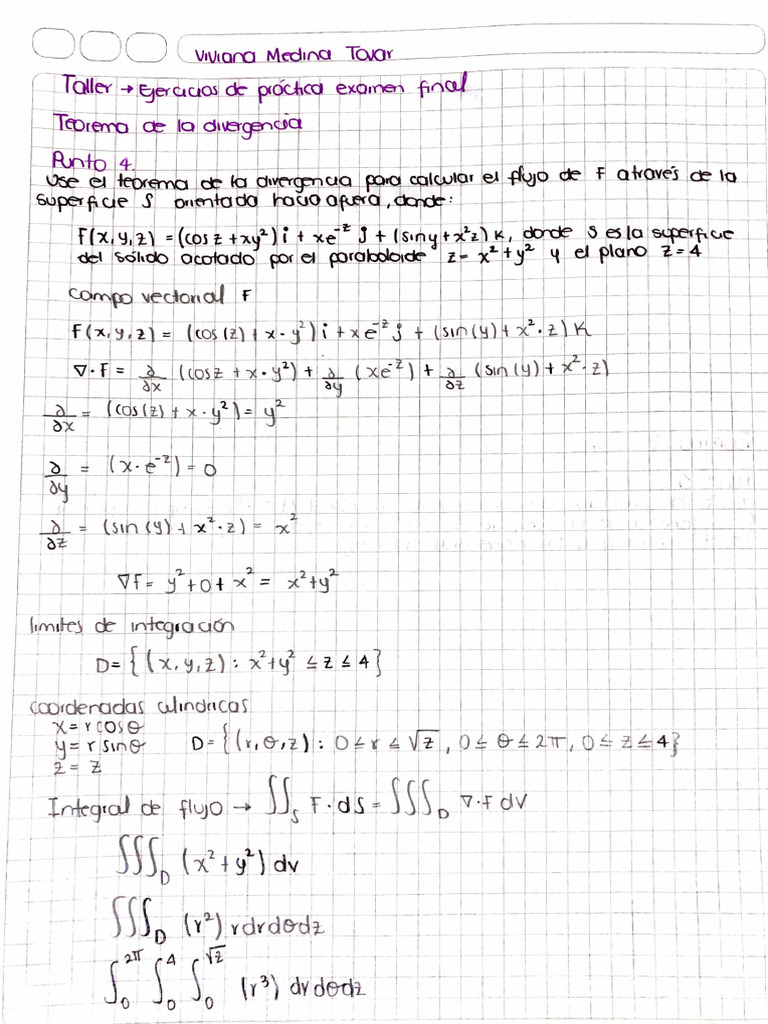 Viviana Medina Tovar
Taller → Ejercicios de práctica examen final
Teorema de la divergencia
Punto 4.
Use el teorema de la divergencia para calcular el flujo de F através de la
superficie S orientada hacia afuera, donde:
F(x,y,z) = (cos z + xy²) i + xe^{-z} j + (sin y + x²z) k, donde S es la superficie
del sólido acotado por el paraboloide z = x² + y² y el plano z = 4
campo vectorial F
F(x,y,z) = (cos(z) + x·y²) i + xe^{-z} j + (sin(y) + x²·z) K
∇·F = ∂/∂x (cos z + x·y²) + ∂/∂y (xe^{-z}) + ∂/∂z (sin(y) + x²·z)
∂/∂x = (cos(z) + x·y²) = y²
∂/∂y = (x·e^{-z}) = 0
∂/∂z = (sin(y) + x²·z) = x²
∇F = y² + 0 + x² = x² + y²
limites de integración
D = {(x,y,z) : x² + y² ≤ z ≤ 4}
coordenadas cilindricas
x = r cos θ
y = r sin θ D = {(r,θ,z) : 0 ≤ r ≤ √z, 0 ≤ θ ≤ 2π, 0 ≤ z ≤ 4}
z = z
Integral de flujo → ∬_S F·dS = ∭_D ∇·F dV
∭_D (x² + y²) dv
∭_D (r²) r dr dθ dz
∫_0^{2π} ∫_0^4 ∫_0^{√z} (r³) dr dθ dz